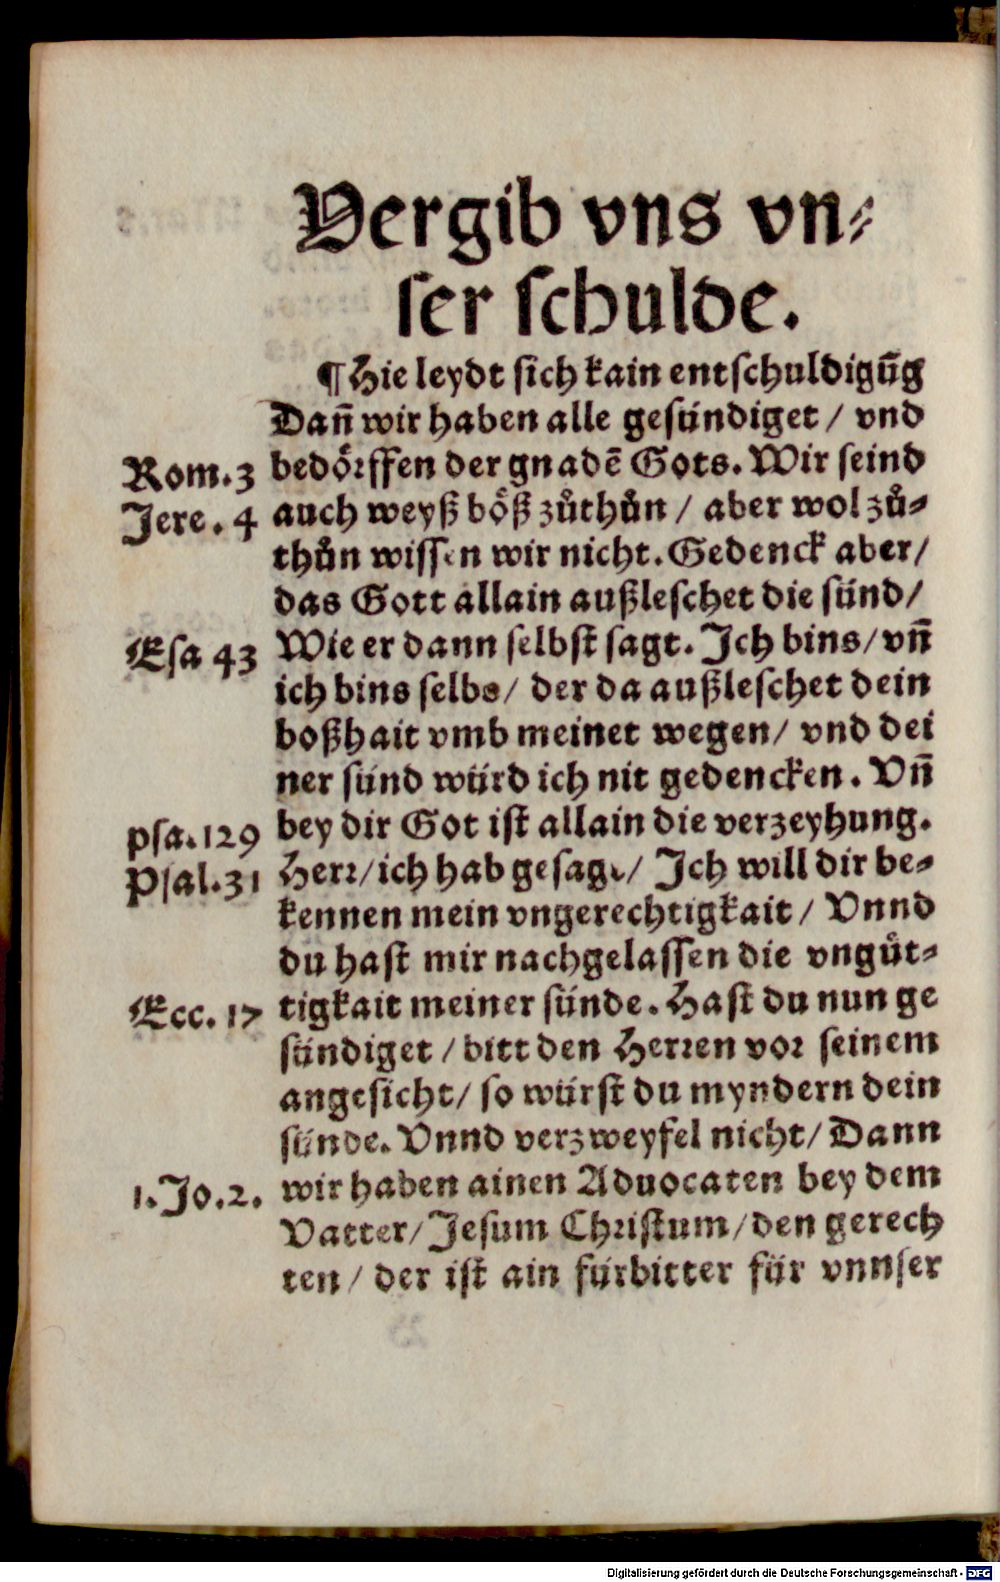 Vergib vns vn⸗
ser schulde.
¶ Hie leydt sich kain entschuldigūg
Dañ wir haben alle gesündiget / vnd
Rom. 3 bedörffen der gnadē Gots. Wir seind
Jere. 4 auch weyß böß zůthůn / aber wol zů⸗
thůn wissen wir nicht. Gedenck aber /
das Gott allain außleschet die sünd /
Esa 43 Wie er dann selbst sagt. Jch bins / vñ
ich bins selbs / der da außleschet dein
boßhait vmb meinet wegen / vnd dei
ner sünd würd ich nit gedencken. Vñ
psa. 129 bey dir Got ist allain die verzeyhung.
Psal. 31 Herr / ich hab gesagt / Jch will dir be⸗
kennen mein vngerechtigkait / Vnnd
du hast mir nachgelassen die vngüt⸗
Ecc. 17 tigkait meiner sünde. Hast du nun ge
sündiget / bitt den Herren vor seinem
angesicht / so würst du myndern dein
sünde. Vnnd verzweyfel nicht / Dann
1. Jo. 2. wir haben ainen Aduocaten bey dem
Vatter / Jesum Christum / den gerech
ten / der ist ain fürbitter für vnnser
Digitalisierung gefördert durch die Deutsche Forschungsgemeinschaft - DFG